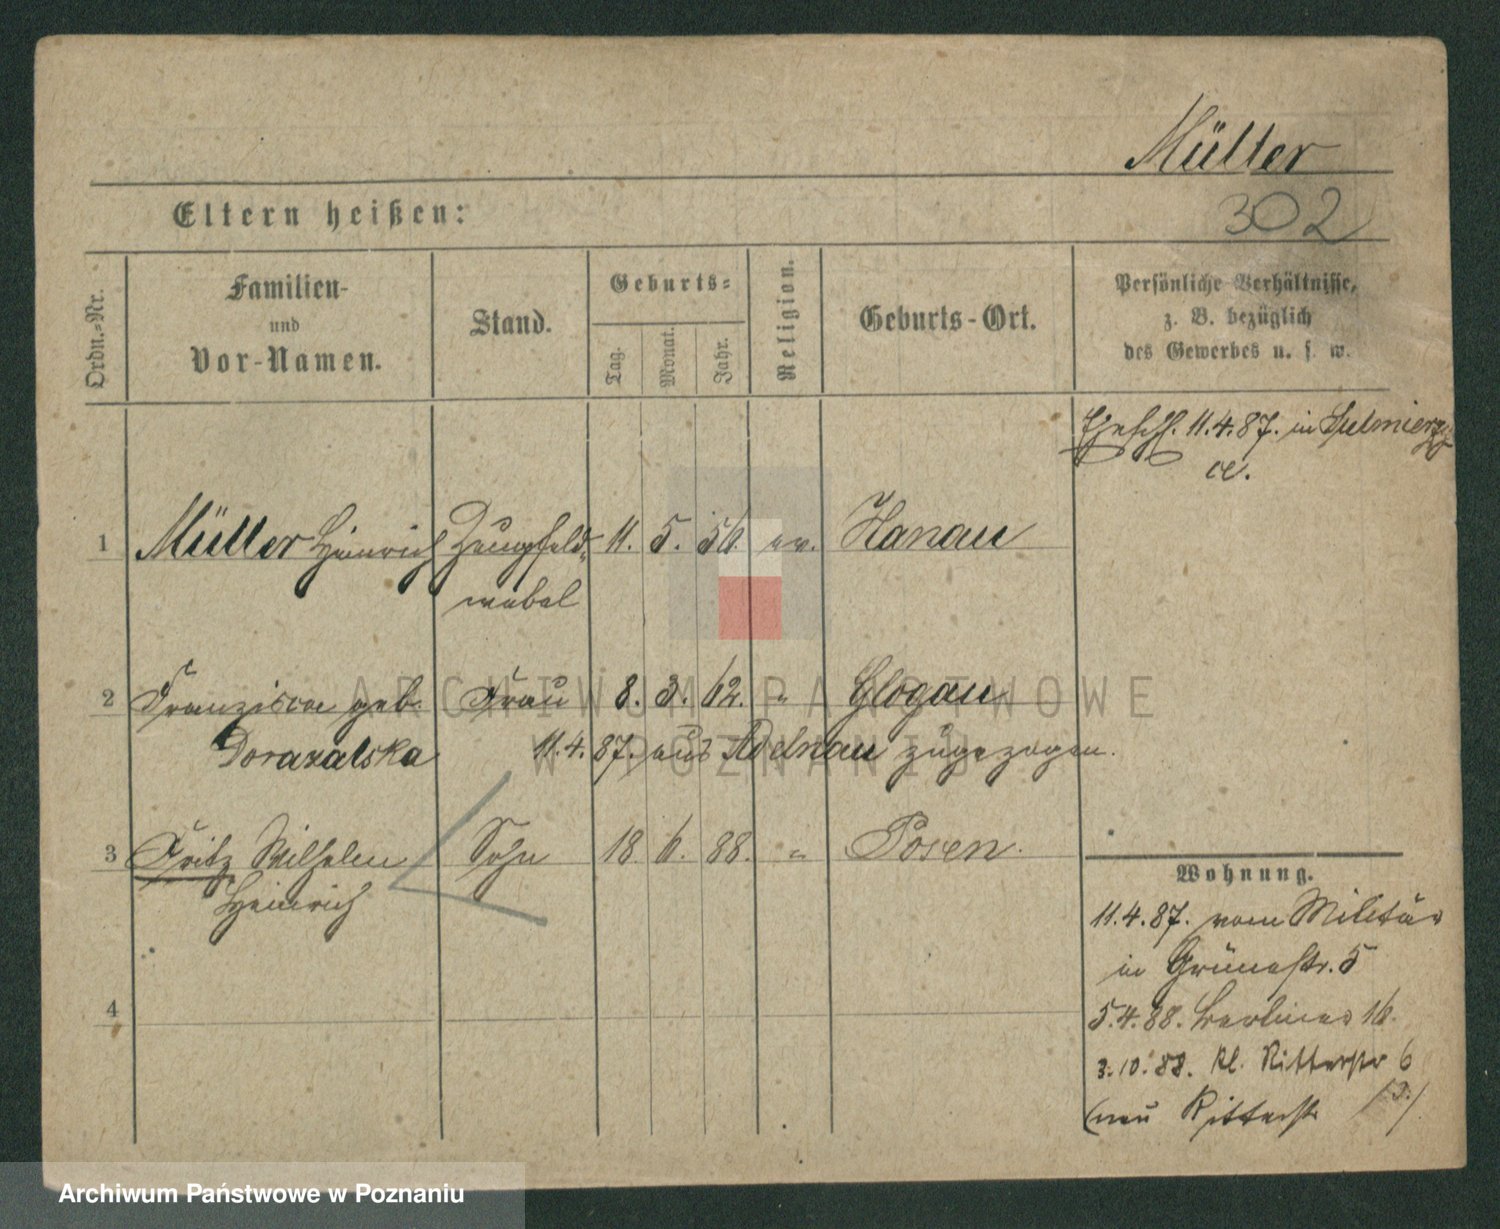 Müller
302
Eltern heißen:
Ordn.-Nr.
Familien- und Vor-Namen.
Stand.
Geburts-
Tag.
Monat.
Jahr.
Religion.
Geburts-Ort.
Persönliche Verhältnisse,
z. B. bezüglich
des Gewerbes u. s. w.
11.4.87. in
1 Müller Heinrich Zeugfeld- 11. 5. 56. ev. Hanau
webel
2 Franzisca geb. Frau 8. 3. 62. " Glogau
11.4.87. aus Adelnau zugezogen.
3 Fritz Wilhelm Sohn 18 6. 88. " Posen.
Heinrich
4
Wohnung.
11.4.87. vom Militär
in Grünestr. 5
5.4.88. Berliner 16.
3.10.88. Kl. Ritterstr 6
(neu Ritterstr /3./
ARCHIWUM PAŃSTWOWE
W POZNANIU
Archiwum Państwowe w Poznaniu